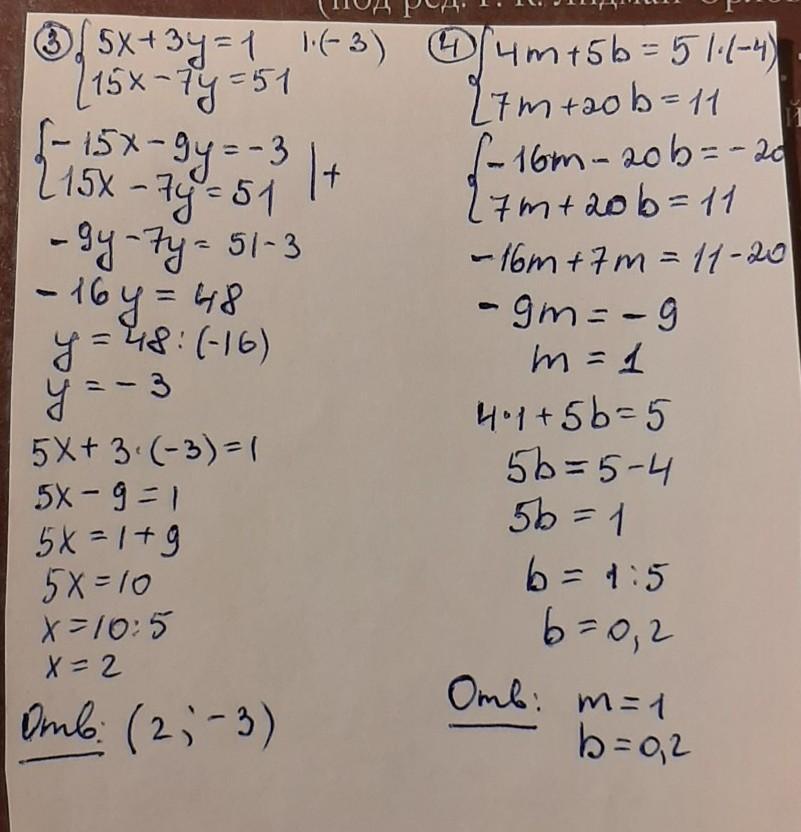 (под ред.
③ { 5x + 3y = 1 | · (-3)
15x - 7y = 51
{ - 15x - 9y = -3
15x - 7y = 51 | +
- 9y - 7y = 51 - 3
- 16y = 48
y = 48 : (-16)
y = - 3
5x + 3 · (-3) = 1
5x - 9 = 1
5x = 1 + 9
5x = 10
x = 10 : 5
x = 2
Отв: (2; -3)
④ { 4m + 5b = 5 | · (-4)
7m + 20b = 11
{ - 16m - 20b = - 20
7m + 20b = 11
- 16m + 7m = 11 - 20
- 9m = - 9
m = 1
4 · 1 + 5b = 5
5b = 5 - 4
5b = 1
b = 1 : 5
b = 0,2
Отв: m = 1
b = 0,2